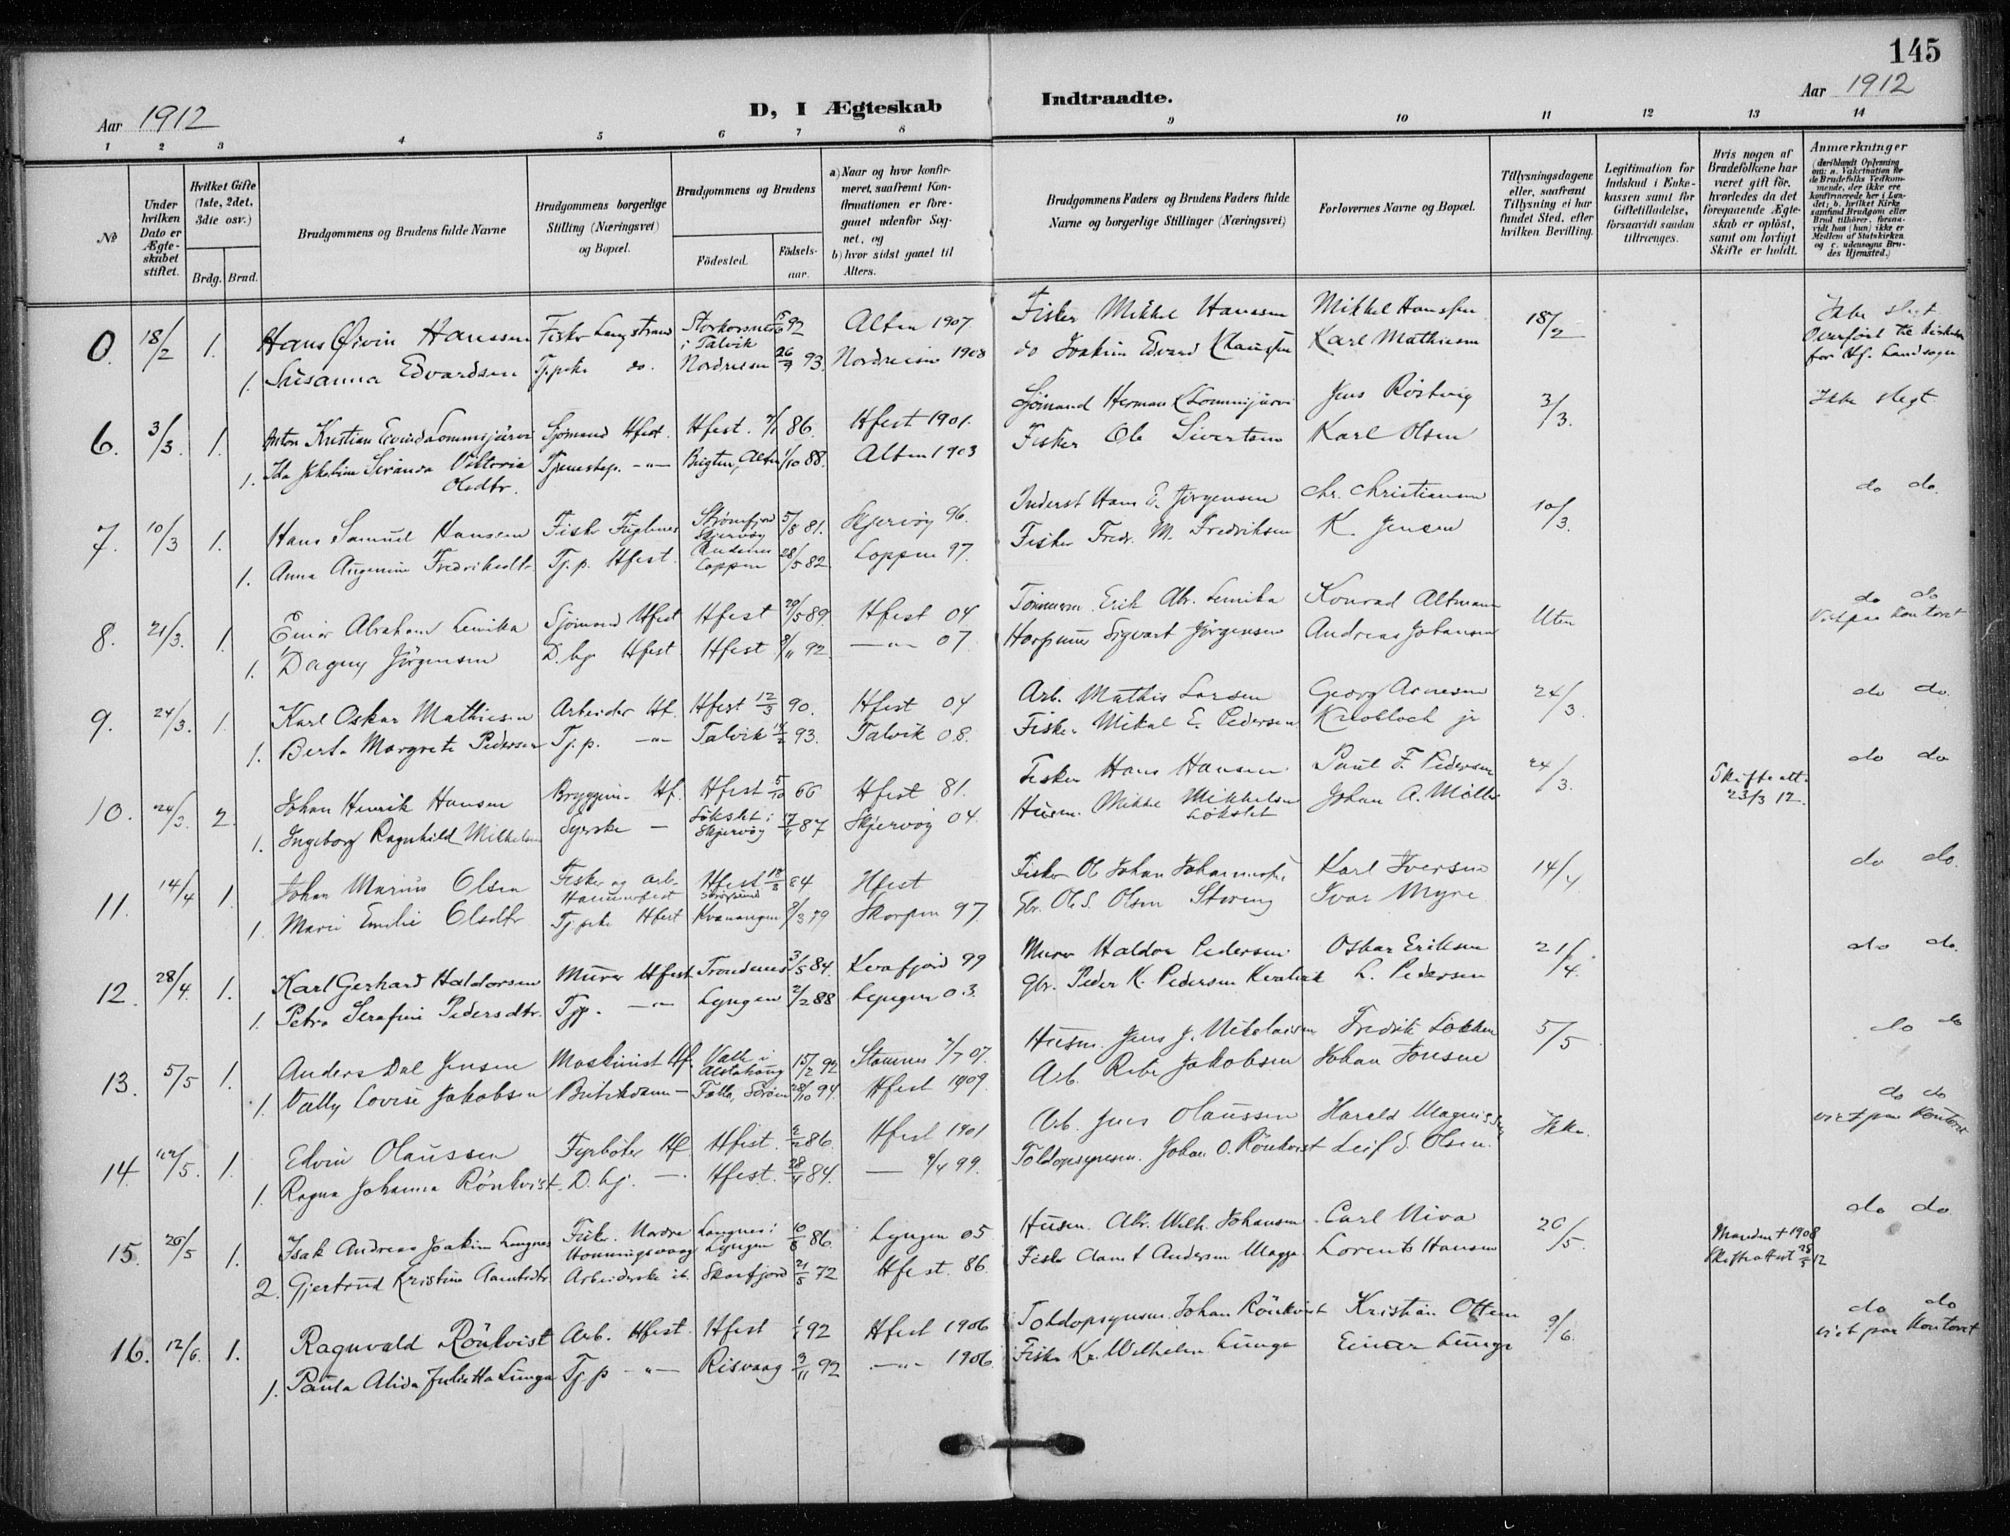 145
Aar 1912
D, I Ægteskab Indtraadte.
Aar 1912
1 2 3 4 5 6 7 8 9 10 11 12 13 14
No
Under hvilken Dato er Ægteskabet stiftet.
Hvilket Gifte (1ste, 2det, 3die osv.)
Brdg. Brud.
Brudgommens og Brudens fulde Navne
Brudgommens borgerlige Stilling (Næringsvei) og Bopæl.
Brudgommens og Brudens
Födested.
Födsels-aar.
a) Naar og hvor konfirmeret, saafremt Konfirmationen er foregaaet udenfor Sognet, og
b) hvor sidst gaaet til Alters.
Brudgommens Faders og Brudens Faders fulde Navne og borgerlige Stillinger (Næringsvei)
Forlovernes Navne og Bopæl.
Tillysningsdagene eller, saafremt Tillysning ei har fundet Sted, efter hvilken Bevilling.
Legitimation for Indskud i Enkekassen samt for Giftetilladelse, forsaavidt saadan tiltrænges.
Hvis nogen af Brudefolkene har været gift för, hvorledes da det foregaaende Ægteskab er oplöst, samt om lovligt Skifte er holdt.
Anmærkninger
0. 18/2 1. Hans Øivin Hanssen Fisker Langstrand i Talvik 92 Alten 1907 Fisker Mikkel Hanssen Mikkel Hanssen 18/2 Ikke slegt
1. Susanna Edvardsen Tj.pike do. Nordreisen 26/9 93. Nordreisen 1908 do Joakim Edvard Klaussen Karl Mathisen Overført til
for Hf. Landsogn
6. 3/3. 1. Anton Kristian Eivind Lommijärvi Sjömand Hfest. Hfest. 86. Hfest 1901. Sjömand Herman Lommijärvi Jens Röstvig 3/3. Ikke slegt
1. Ida Serianda Viktoria Olsdtr. Tjenestep. -"- Bugten, Alten 1/10 88. Alten 1903 Fisker Ole Sivertsen Karl Olsen
7. 10/3 1. Hans Samuel Hansen Fisker Fuglenes Skjervøy 5/8 81. Skjervöy 96. Inderst Hans E. Jörgensen Chr. Christiansen 10/3. do do.
1. Anna Fredrikesdtr Tj.p. Hfest. Loppen 28/5 82 Loppen 97. Fisker Fredr. M. Fredriksen K. Jensen
8. 21/3. 1. Einar Abraham Lemika Sjömand Hfest Hfest 20/5 89. Hfest 04 Tömmerm. Erik Abr. Lemika Konrad Altmann Uten do do
1. Dagny Jörgensen D. hj. Hfest Hfest 8/11 92. -"- 07. Sigvart Jörgensen Andreas Johansen Viet paa kontoret
9. 24/3. 1. Karl Oskar Mathisen Arbeider Hf. Hfest 12/3 90. Hfest 04 Arb. Mathis Larsen Georg Arnesen 24/3. do do.
1. Berta Margrete Pedersen Tj.p. -"- Talvik 93. Talvik 08. Fisker Mikal E. Pedersen Knobloch jr
10. 24/3. 2. Johan Henrik Hansen Bryggem. Hf. Hfest 5/10 66 Hfest 81. Fisker Hans Hansen Paul F. Pedersen 24/3. Skifteatt. 23/3 12. do do
1. Ingeborg Ragnhild Mikkelsen Syerske - Lökslet i Skjervöy 87 Skjervöy 04. Husm. Mikkel Mikkelsen Lökslet Johan A. Möller
11. 14/4 1. Johan Marius Olsen Fisker og arb. Hammerfest Hfest 18/8 84 Hfest Fisker Ol. Johan Karl Iversen 14/4 do do.
1. Marie Emelie Olsdtr. Tj.pike Hfest Kvænangen 8/3 79 Skorpen 97. Gbr. Ol. S. Olsen Storeng Ivar Myre
12. 28/4. 1. Karl Gerhard Haldorsen Murer Hfest Trondenes 3/5 84. Kvæfjord 99 Murer Haldor Pedersen Oskar Eriksen 21/4. do do.
1. Petra Serafine Pedersdtr. Tjp. -"- Lyngen 2/2 88 Lyngen 03. Gbr. Peder K. Pedersen L. Pedersen
13. 5/5 1. Anders Dal Jensen Maskinist Hf. Alstahaug 15/2 92 Stamnes 07. Husm. Jens J. Nikolaisen Fredrik Lökken 5/5 do do
1. Vally Lovise Jakobsen Butikdame - 28/10 94. Hfest 1909. Arb. Jakobsen Johan Jensen
14. 5. 1. Elvin Olaussen Fyrböter Hf. Hfest. 86. Hfest 1901 Arb. Jens Olaussen Harald Magnussen Ikke. do do
1. Ragna Johanna Rönkvist D. hj. - Hfest. 84. — 99. Toldopsynsm. Johan O. Rönkvist Leif S. Olsen. viet paa Kontoret
15. 26/5 1. Isak Andreas Joakim Langnes Fisker. Nordre Honningsvaag Langnes i Lyngen 10/8 86. Lyngen 05 Husm. Abr. Wilh. Johansen Carl Niva 26/5. Manden † 1908 do do
2. Gjertrud Kristine Arbeiderske Skarfjord 21/5 72 Hfest. 86. Fisker Andersen Magga Lorents Hansen Skifteattest 12
16. 12/6. 1. Ragnvald Rönkvist Arb. Hfest. Hfest 92 Hfest 1906 Toldopsynsm. Johan Rönkvist Kristian Ottem 9/6. do do
1. Paula Alida Julietta Lunga Tj.p -"- Risvaag 3/11 92 -"- 1906. Fisker Kr. Wilhelm Lunga Einar Lunga viet paa Kontoret